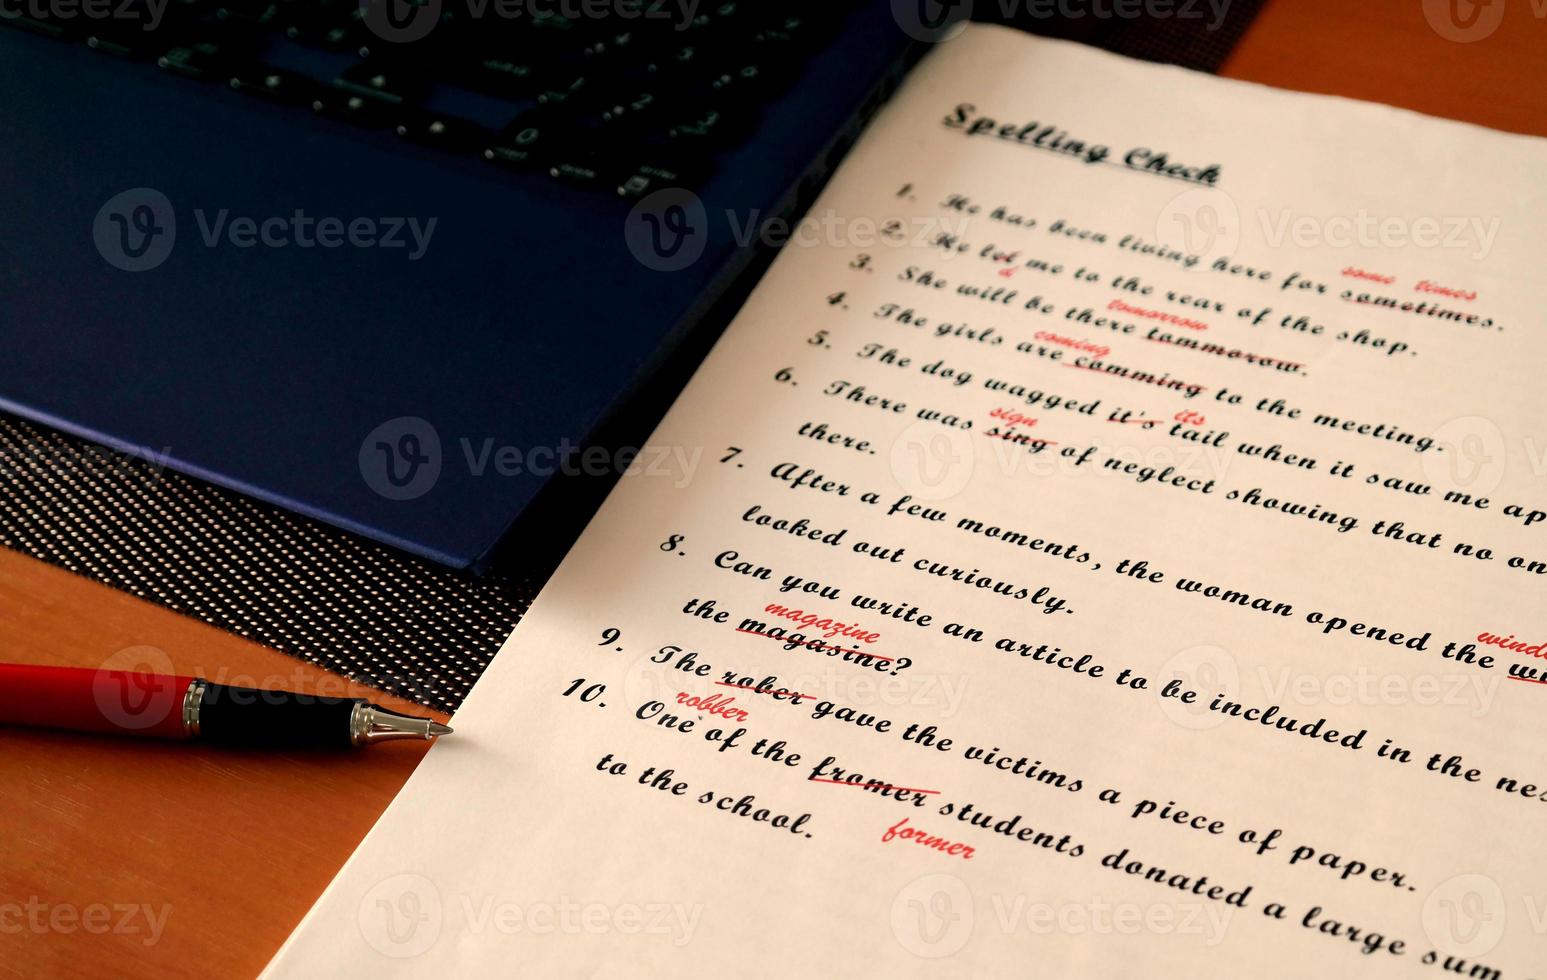 Spelling Check
1. He has been living here for sometimes.
some times
2. He let me to the rear of the shop.
d
3. She will be there tommorow.
tomorrow
4. The girls are comming to the meeting.
coming
5. The dog wagged it's tail when it saw me ap
its
6. There was sing of neglect showing that no on
sign
there.
7. After a few moments, the woman opened the wi
windo
looked out curiously.
8. Can you write an article to be included in the nex
the magasine?
magazine
9. The rober gave the victims a piece of paper.
robber
10. One of the fromer students donated a large sum
former
to the school.
Vecteezy